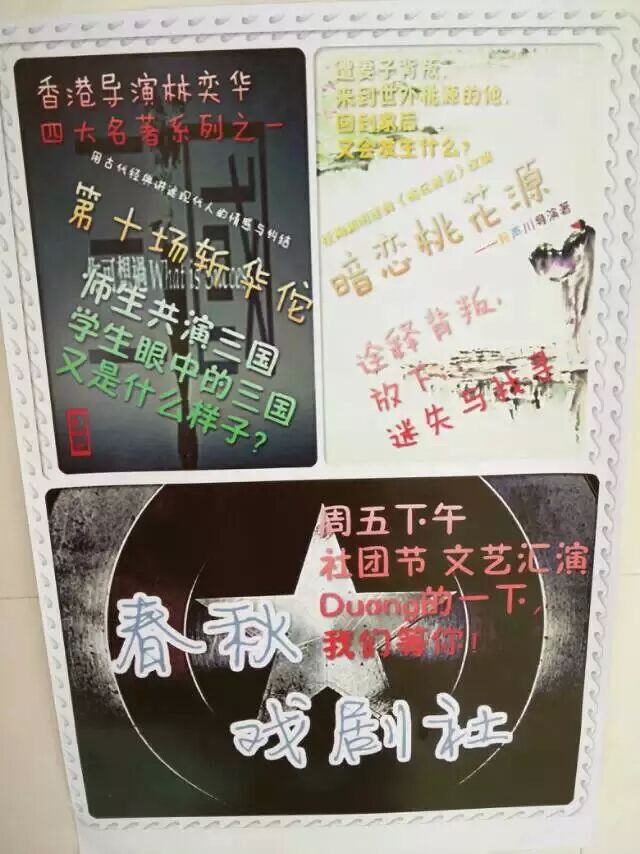 香港导演林奕华
四大名著系列之一
用古代经典讲述现代人的情感与纠结
第十场斩华佗
What is Success
师生共演三国
学生眼中的三国
又是什么样子?
遭妻子背叛,
来到世外桃源的他,
回到家后,
又会发生什么?
暗恋桃花源
——赖声川导演著
诠释背叛,
放下,
迷失与找寻
周五下午
社团节 文艺汇演
Duang的一下,
我们等你!
春秋
戏剧社